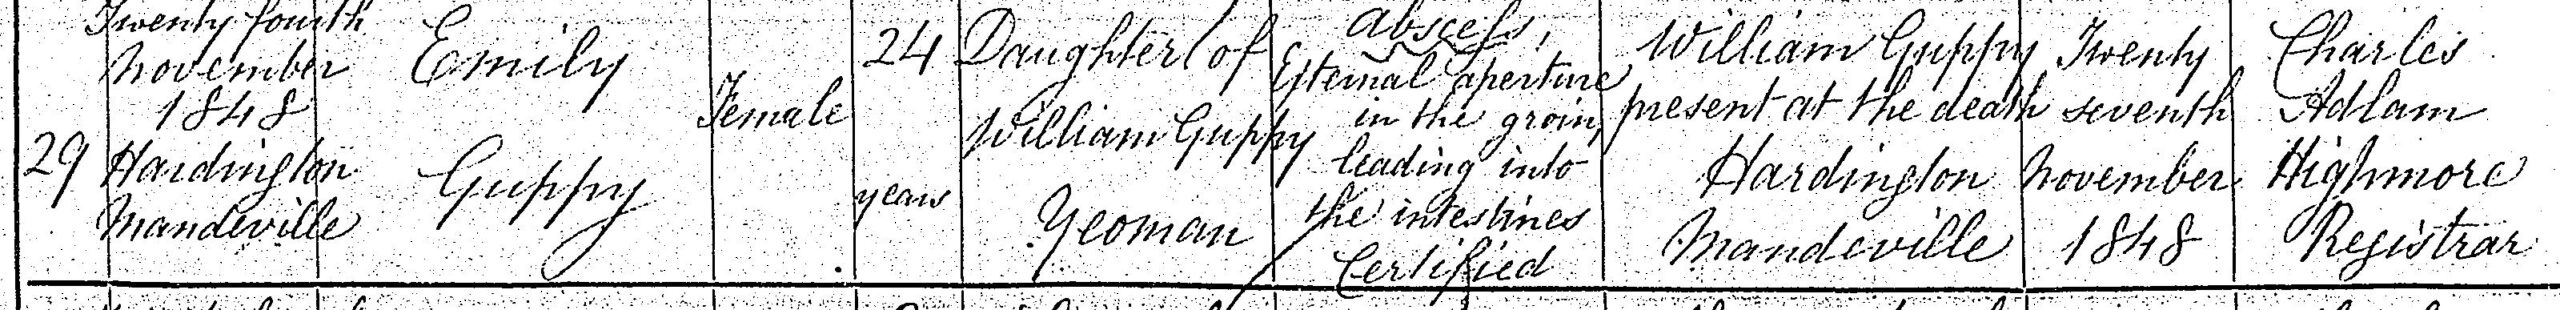 29
Twenty fourth
November
1848
Hardington
Mandeville
Emily
Guppy
Female
24
years
Daughter of
William Guppy
Yeoman
Abscess,
External aperture
in the groin,
leading into
the intestines
Certified
William Guppy
present at the death
Hardington
Mandeville
Twenty
seventh
November
1848
Charles
Adlam
Highmore
Registrar